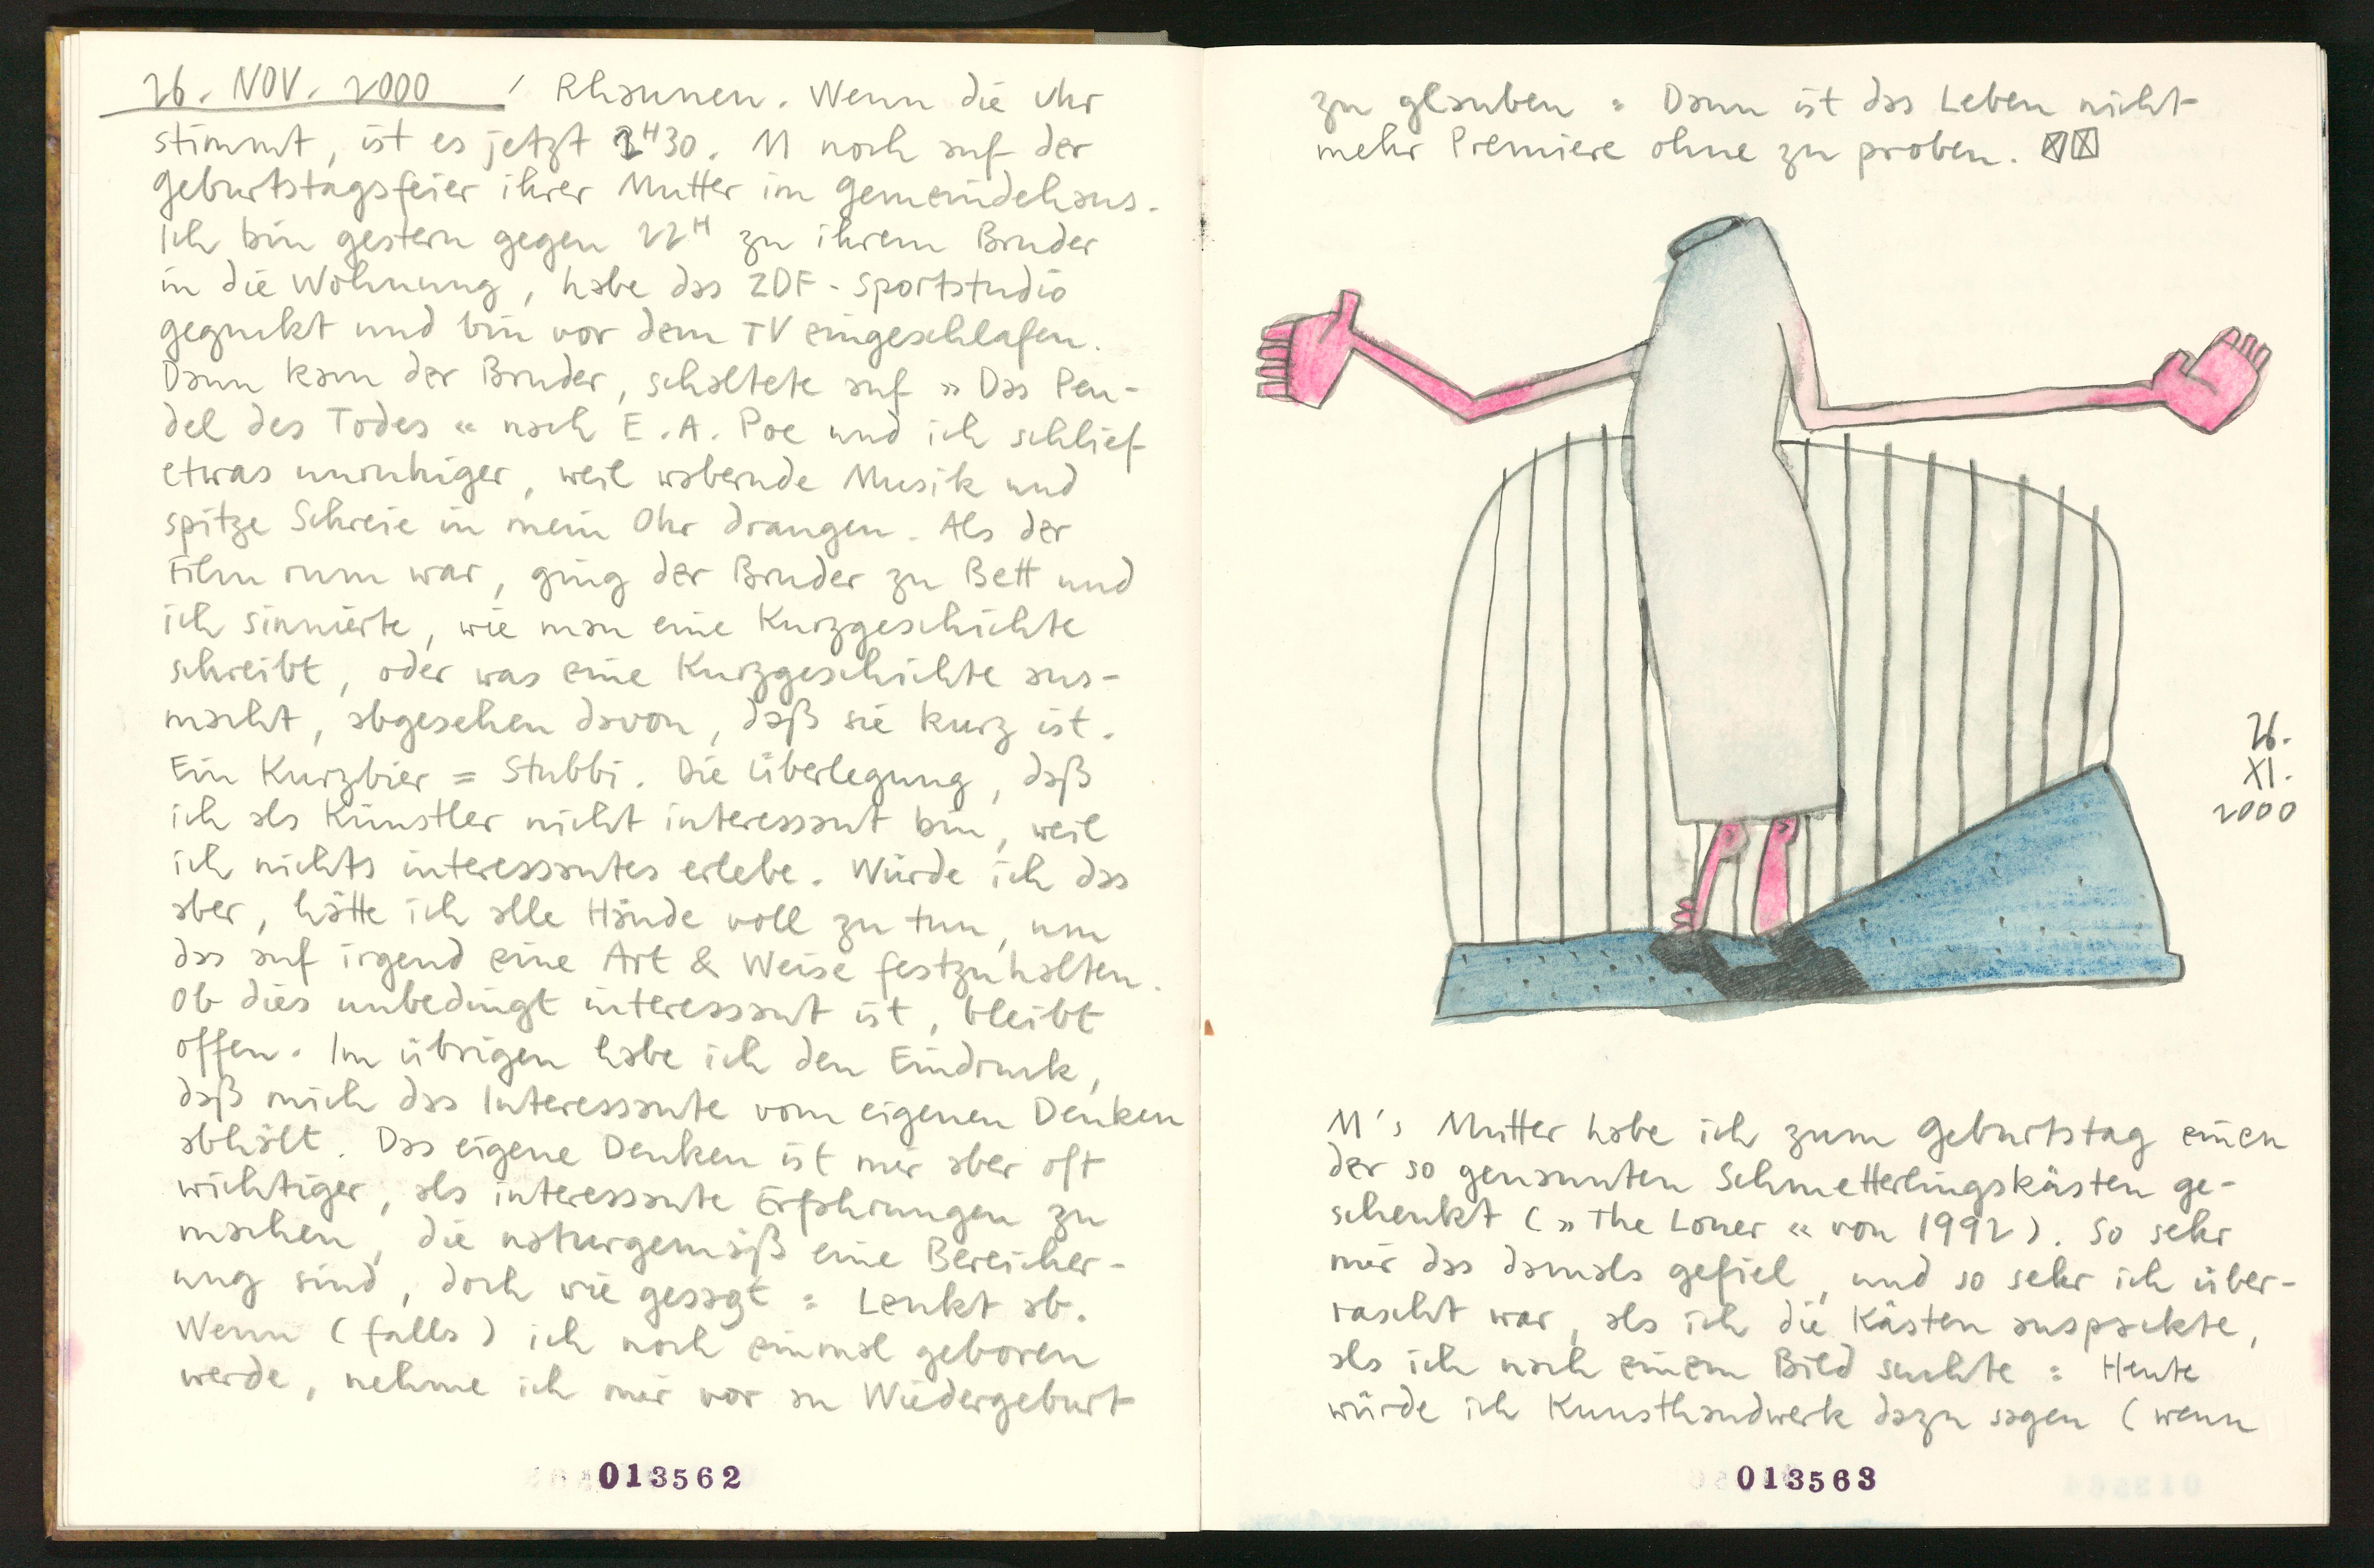 26. NOV. 2000 / Rhaunen. Wenn die Uhr
stimmt, ist es jetzt 2H30. M noch auf der
Geburtstagsfeier ihrer Mutter im Gemeindehaus.
Ich bin gestern gegen 22H zu ihrem Bruder
in die Wohnung, habe das ZDF-Sportstudio
geguckt und bin vor dem TV eingeschlafen.
Dann kam der Bruder, schaltete auf »Das Pen-
del des Todes« nach E.A. Poe und ich schlief
etwas unruhiger, weil wabernde Musik und
spitze Schreie in mein Ohr drangen. Als der
Film rum war, ging der Bruder zu Bett und
ich sinnierte, wie man eine Kurzgeschichte
schreibt, oder was eine Kurzgeschichte aus-
macht, abgesehen davon, daß sie kurz ist.
Ein Kurzbier = Stubbi. Die Überlegung, daß
ich als Künstler nicht interessant bin, weil
ich nichts interessantes erlebe. Würde ich das
aber, hätte ich alle Hände voll zu tun, um
das auf irgend eine Art & Weise festzuhalten.
Ob dies unbedingt interessant ist, bleibt
offen. Im übrigen habe ich den Eindruck,
daß mich das Interessante vom eigenen Denken
abhält. Das eigene Denken ist mir aber oft
wichtiger, als interessante Erfahrungen zu
machen, die naturgemäß eine Bereicher-
ung sind, doch wie gesagt: Lenkt ab.
Wenn (falls) ich noch einmal geboren
werde, nehme ich mir vor an Wiedergeburt
013562
zu glauben: Dann ist das Leben nicht
mehr Premiere ohne zu proben.
26.
XI.
2000
M's Mutter habe ich zum Geburtstag einen
der so genannten Schmetterlingskästen ge-
schenkt (»The Loner« von 1992). So sehr
mir das damals gefiel, und so sehr ich über-
rascht war, als ich die Kästen auspackte,
als ich nach einem Bild suchte: Heute
würde ich Kunsthandwerk dazu sagen (wenn
013563